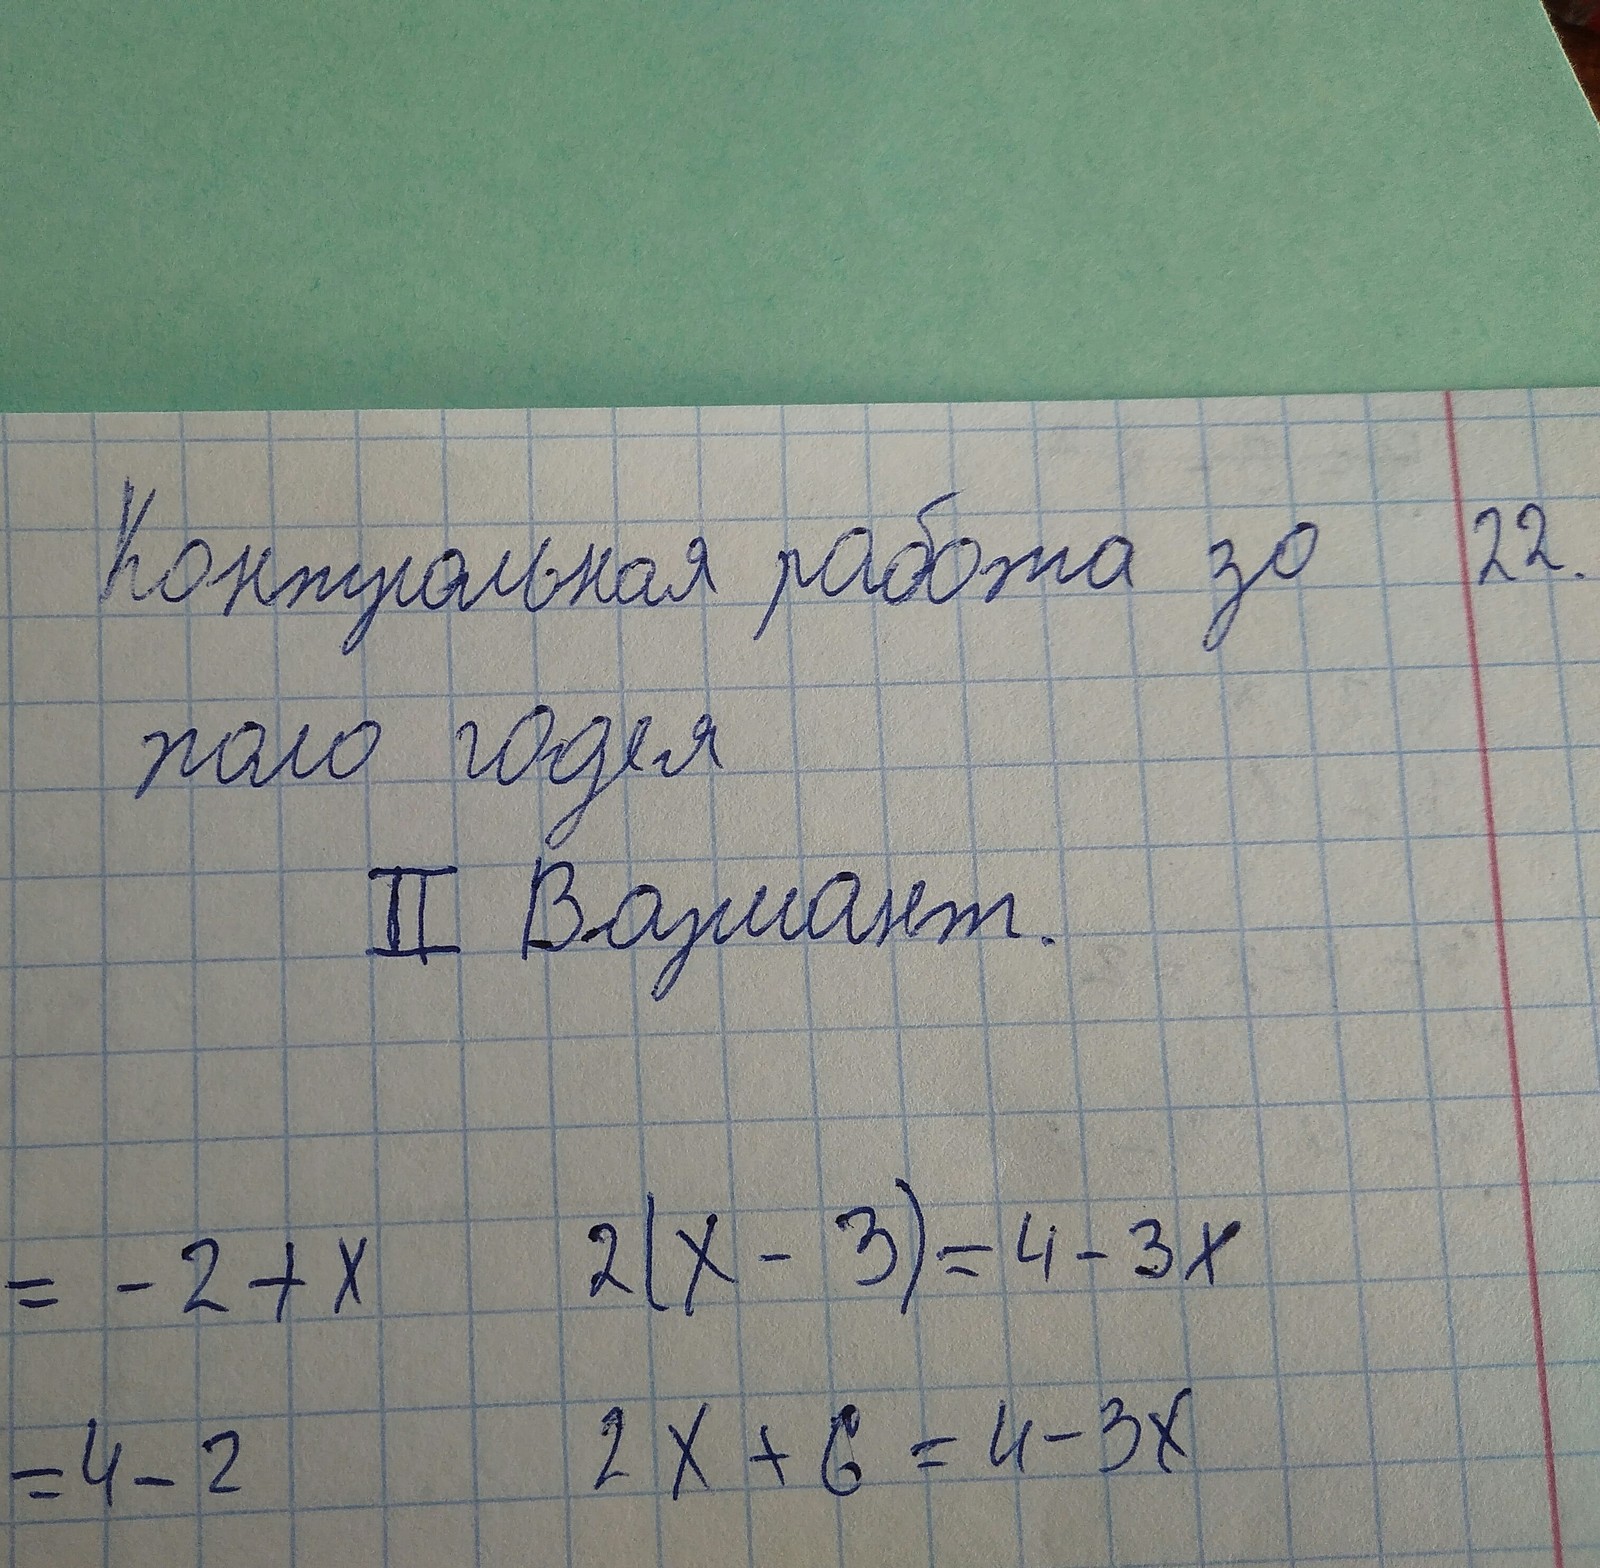 Контральная работа зо 22.
поло годея
II Вариант.
= - 2 + x 2(x - 3) = 4 - 3x
= 4 - 2 2x + 6 = 4 - 3x